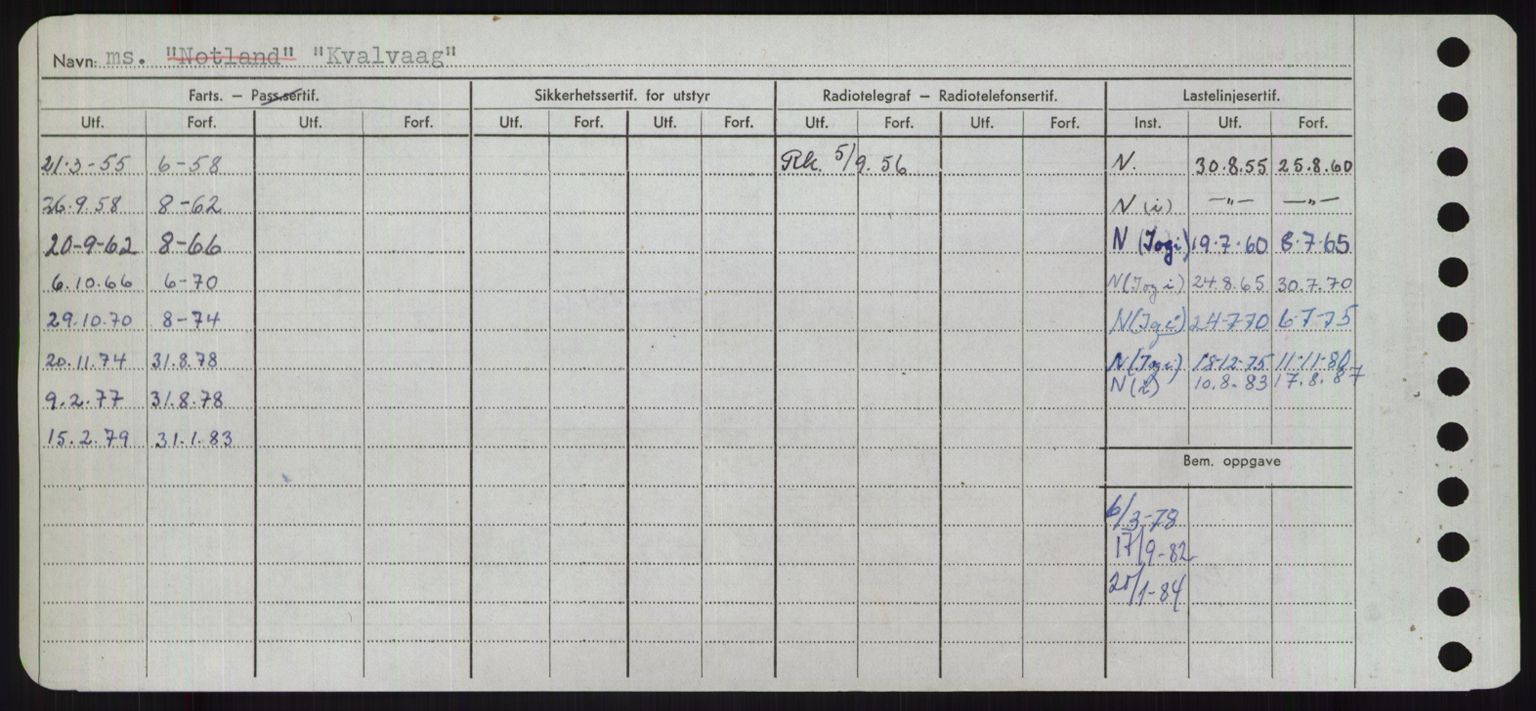 Navn: ms. "Notland" "Kvalvaag"
Farts. — Pass.sertif. Sikkerhetssertif. for utstyr Radiotelegraf — Radiotelefonsertif. Lastelinjesertif.
Utf. Forf. Utf. Forf. Utf. Forf. Utf. Forf. Utf. Forf. Utf. Forf. Inst. Utf. Forf.
21.3-55 6-58 Rk. 5/9.56 N. 30.8.55 25.8.60
26.9.58 8-62 N (i) —"— —"—
20-9-62 8-66 N (Jogi) 19.7.60 8.7.65
6.10.66 6-70 N (Jogi) 24.8.65 30.7.70
29.10.70 8-74 N (Jgi) 24-7-70 6-7-75
20.11.74 31.8.78 N (Jogi) 18-12-75 11-11-80
N (i) 10.8.83 17.8.87
9.2.77 31.8.78
15.2.79 31.1.83
Bem. oppgave
6/3-78
17/9-82
/1-84